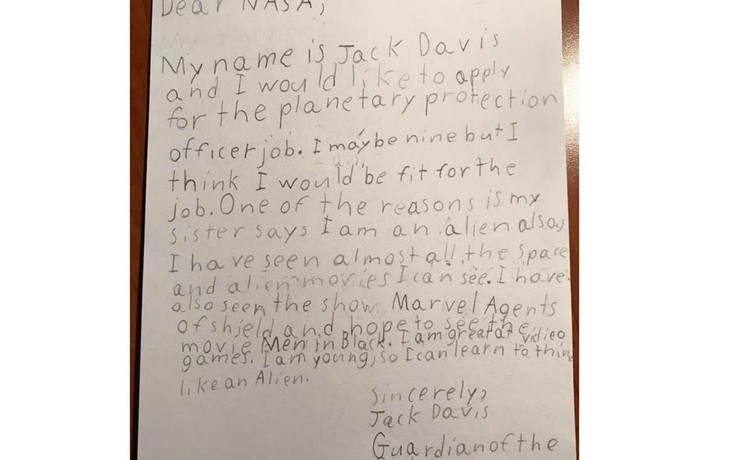 Dear NASA,
My name is Jack Davis
and I would like to apply
for the planetary protection
officer job. I may be nine but I
think I would be fit for the
job. One of the reasons is my
sister says I am an alien also,
I have seen almost all the space
and alien movies I can see. I have
also seen the show Marvel Agents
of shield and hope to see the
movie Men in Black. I am great at vidieo
games. I am young, so I can learn to think
like an Alien.
Sincerely,
Jack Davis
Guardian of the